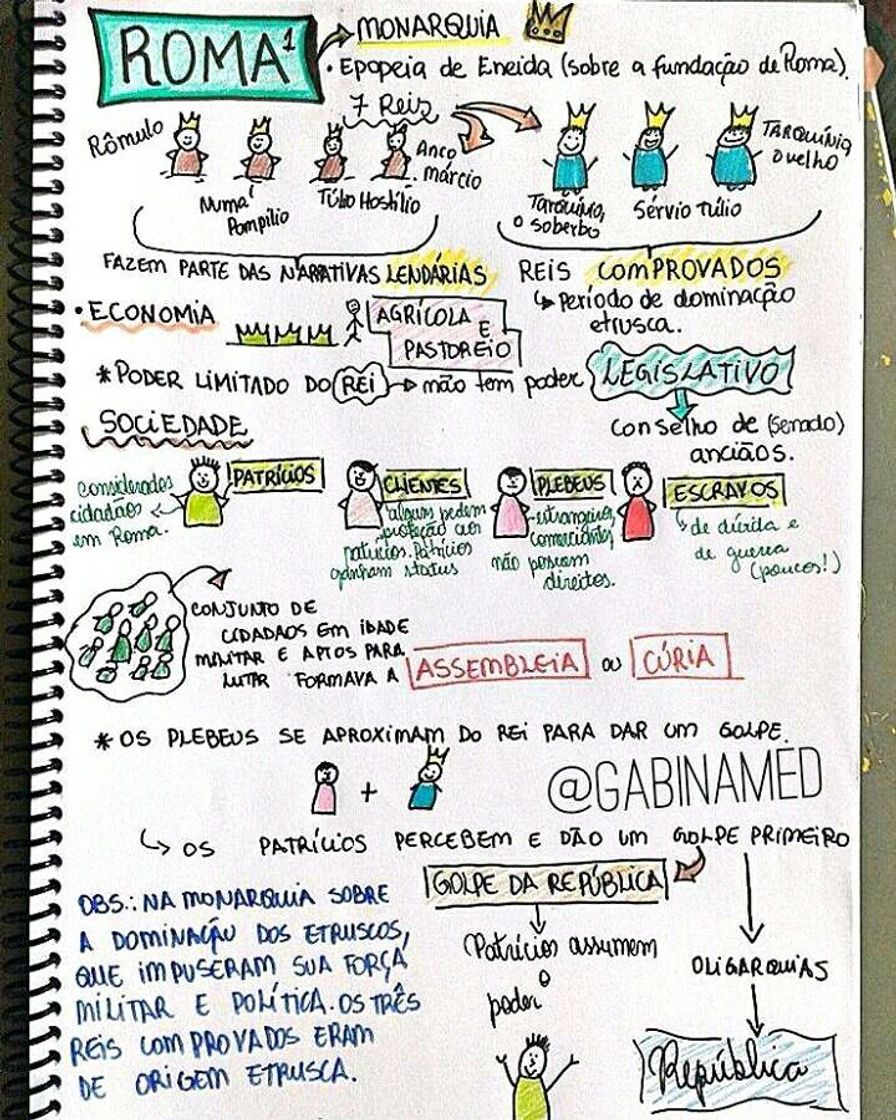 ROMA¹
MONARQUIA
• Epopeia de Eneida (sobre a fundação de Roma).
7 Reis
Rômulo
Numa Pompílio
Túlio Hostílio
Anco márcio
Tarquínio, o soberbo
Sérvio Túlio
TARQUÍNIO o velho
FAZEM PARTE DAS NARRATIVAS LENDÁRIAS
REIS COMPROVADOS
↳ período de dominação
etrusca.
• ECONOMIA
AGRÍCOLA
E
PASTOREIO
* PODER LIMITADO DO REI → não tem poder LEGISLATIVO
Conselho de (Senado)
anciãos.
SOCIEDADE
PATRÍCIOS
considerados
cidadãos
em Roma.
CLIENTES
alguns pedem
proteção aos
patrícios. Patrícios
ganham status
PLEBEUS
estrangeiros,
comerciantes,
não possuem
direitos.
ESCRAVOS
de dívida e
de guerra
(poucos!)
CONJUNTO DE
CIDADAOS EM IDADE
MILITAR E APTOS PARA
LUTAR FORMAVA A ASSEMBLEIA OU CÚRIA
* OS PLEBEUS SE APROXIMAM DO REI PARA DAR UM GOLPE.
+
@GABINAMED
↳ OS PATRÍCIOS PERCEBEM E DÃO UM GOLPE PRIMEIRO
GOLPE DA REPÚBLICA
Patrícios assumem
o
poder
OLIGARQUIAS
República
OBS.: NA MONARQUIA SOBRE
A DOMINAÇÃO DOS ETRUSCOS,
QUE IMPUSERAM SUA FORÇA
MILITAR E POLÍTICA. OS TRÊS
REIS COMPROVADOS ERAM
DE ORIGEM ETRUSCA.